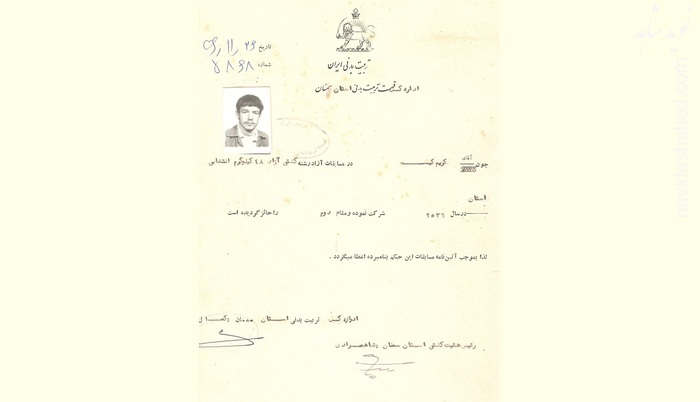 تاریخ ۳۶/۱۱/۲۳
شماره ۵۸۶۸
تربیت بدنی ایران
اداره کل تربیت بدنی استان سمنان
چون آقای کریم در مسابقات آزاد رشته کشتی آزاد ۴۸ کیلوگرم انتخابی
استان
در سال ۲۵۳۶ شرکت نموده و مقام دوم را حائز گردیده است
لذا بموجب آئین نامه مسابقات این حکم بنامبرده اعطا میگردد .
اداره کل تربیت بدنی استان سمنان
رئیس هیئت کشتی استان سمنان
نوید شاهد
navideshahed.com